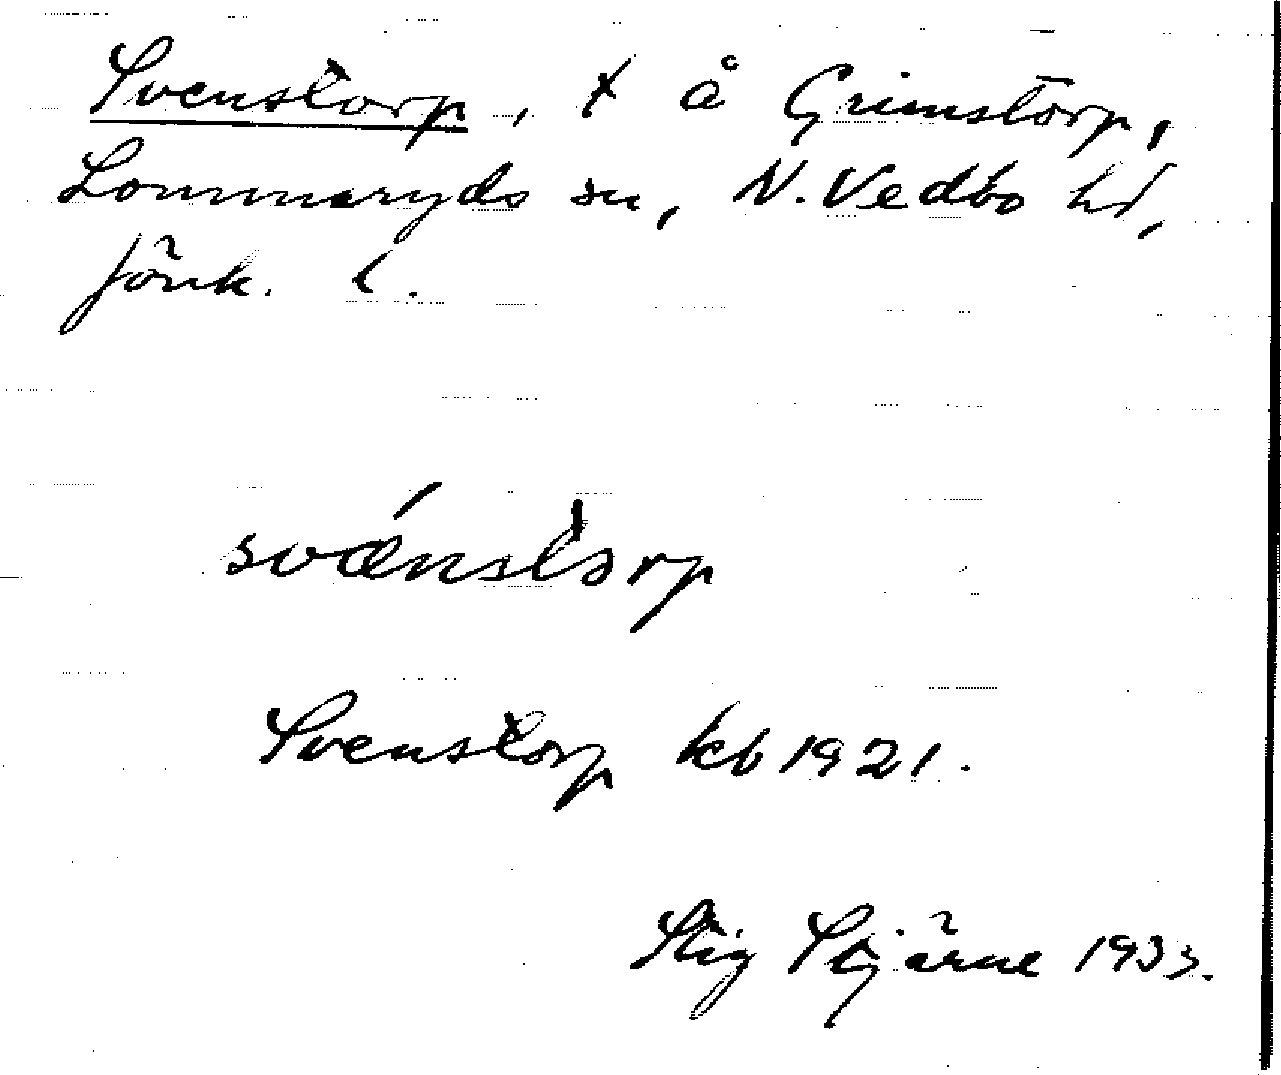 Svenstorp, t å Grimstorp,
Lommaryds sn, N. Vedbo hd,
Jönk. l.
svǽnstɔrp
Svenstorp kb 1921.
Stig Stjärne 1933.